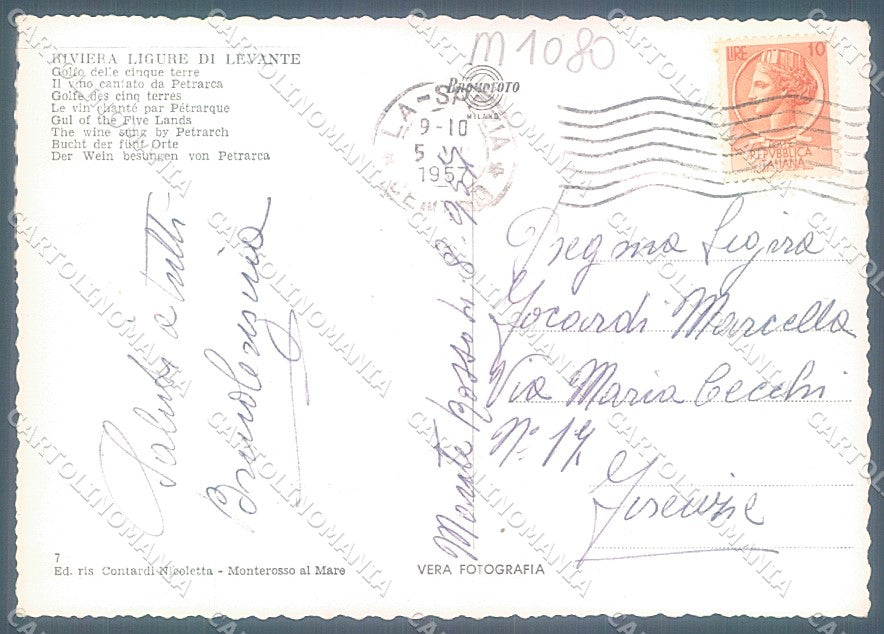 m 1080
RIVIERA LIGURE DI LEVANTE
Golfo delle cinque terre
Il vino cantato da Petrarca
Golfe des cinq terres
Le vin chanté par Pétrarque
Gul of the Five Lands
The wine sung by Petrarch
Bucht der fünf Orte
Der Wein besungen von Petrarca
BROMOFOTO
MILANO
LA-SPEZIA
9-10
5
195
LIRE 10
REPVBBLICA
ITALIANA
Saluti a tutti
Monte Rosso
Jocardi Marcella
Via Maria Cecchi
N° 17
Firenze
7
Ed. ris Contardi Nicoletta - Monterosso al Mare
VERA FOTOGRAFIA
CARTOLINOMANIA